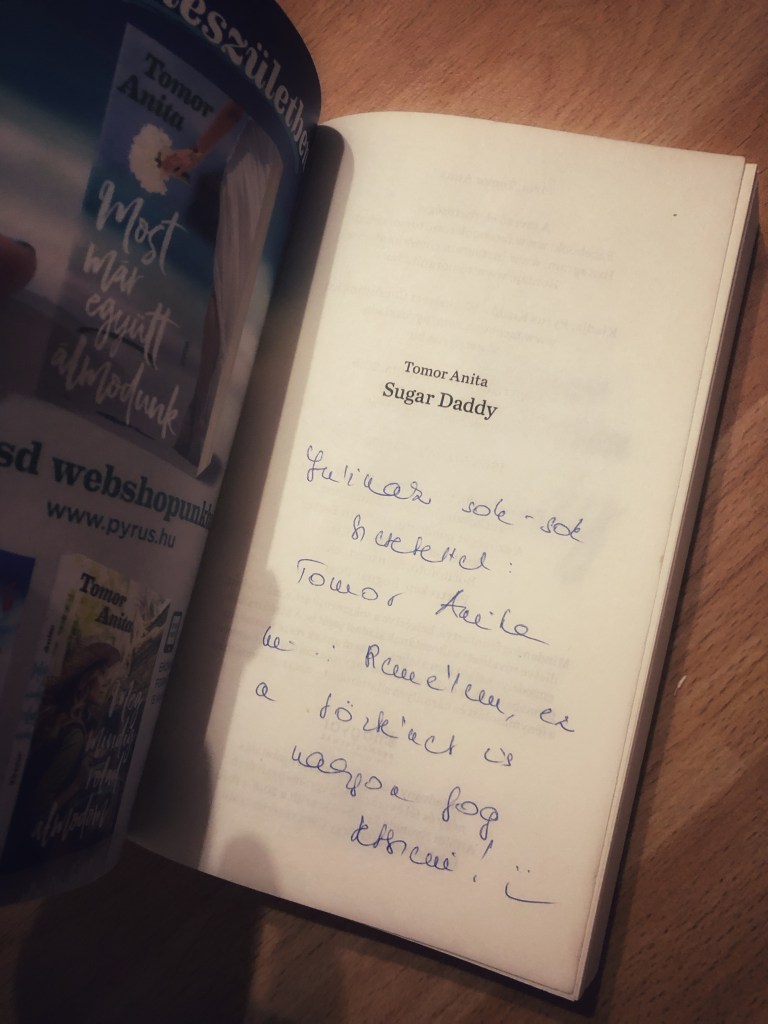 részületbe
Tomor
Anita
Most
már
együtt
álmodunk
sd webshopunkb
www.pyrus.hu
Tomor
Anita
álmodunk
Tomor Anita
Sugar Daddy
Julinak sok-sok
szeretettel:
Tomor Anita
Remélem, ez
a történet is
nagyon fog
tetszeni! :)